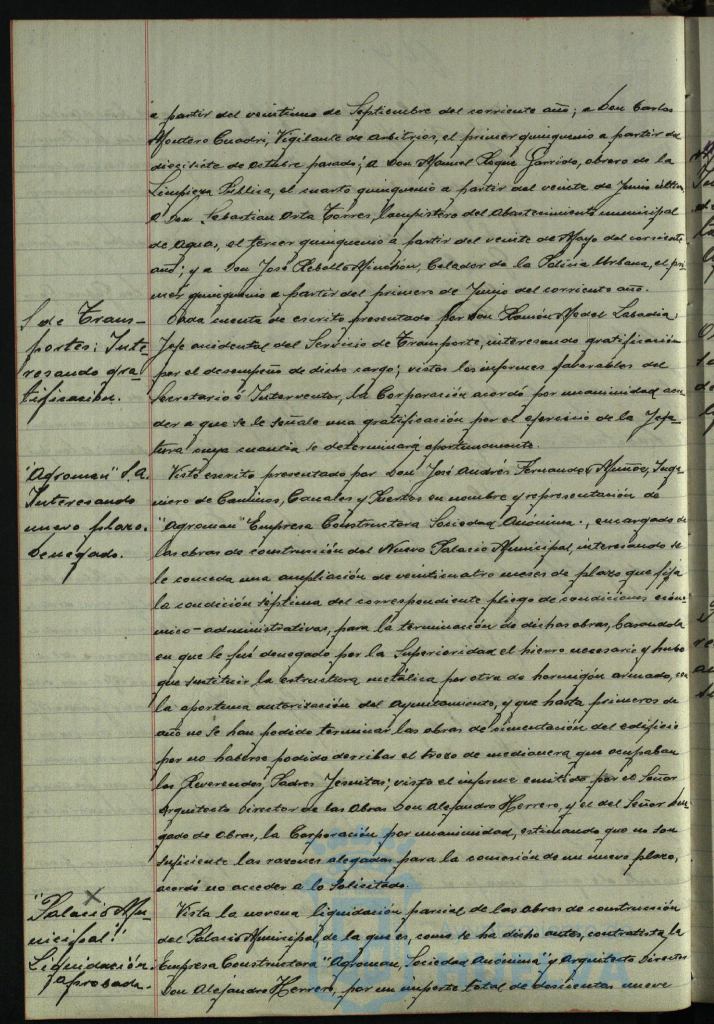 a partir del veintiuno de Septiembre del corriente año; a Don Carlos
Montero Cuadri, Vigilante de Arbitrios, el primer quinquenio a partir del
diecisiete de Octubre pasado; a Don Manuel Roque Garrido, obrero de la
Limpieza Pública, el cuarto quinquenio a partir del veinte de Junio último
a Don Sebastian Orta Torres, lampistero del Abastecimiento municipal
de Aguas, el tercer quinquenio a partir del veinte de Mayo del corriente
año; y a Don José Rebollo Minchón, Celador de la Policía Urbana, el pri-
mer quinquenio a partir del primero de Junio del corriente año.
S. de Trans-
portes: Inte-
resando gra-
tificación.
Dada cuenta de escrito presentado por Don Ramón Medel Labadía,
Jefe accidental del Servicio de Transporte, interesando gratificación
por el desempeño de dicho cargo; vistos los informes favorables del
Secretario é Interventor, la Corporación acordó por unanimidad acce-
der a que se le señale una gratificación por el ejercicio de la Jefa-
tura cuya cuantía se determinará oportunamente.
"Agroman" S.A.
Interesando
nuevo plazo.
Denegado.
Visto escrito presentado por Don José Andrés Fernandez Muñoz, Inge-
niero de Caminos, Canales y Puertos en nombre y representación de
"Agroman" Empresa Constructora Sociedad Anónima., encargada de
las obras de construcción del Nuevo Palacio Municipal, interesando se
le conceda una ampliación de veinticuatro meses de plazo que fija
la condición séptima del correspondiente pliego de condiciones econó-
mico-administrativas, para la terminación de dichas obras, basandola
en que le fué denegado por la Superioridad el hierro necesario y hubo
que sustituir la estructura metálica por otra de hormigón armado, con
la oportuna autorización del Ayuntamiento, y que hasta primeros de
año no se han podido terminar las obras de cimentación del edificio
por no haberse podido derribar el trozo de medianera que ocupaban
los Reverendos Padres Jesuitas; visto el informe emitido por el Señor
Arquitecto Director de las Obras Don Alejandro Herrero, y el del Señor Dele-
gado de Obras, la Corporación por unanimidad, estimando que no son
suficiente las razones alegadas para la concesión de un nuevo plazo,
acordó no acceder a lo solicitado.
"Palacio Mu-
nicipal"
Liquidación
aprobada.
Vista la novena liquidación parcial de las obras de construcción
del Palacio Municipal, de la que es, como se ha dicho antes, contratista la
Empresa Constructora "Agroman, Sociedad Anónima" y Arquitecto Director
Don Alejandro Herrero, por un importe total de doscientas nueve